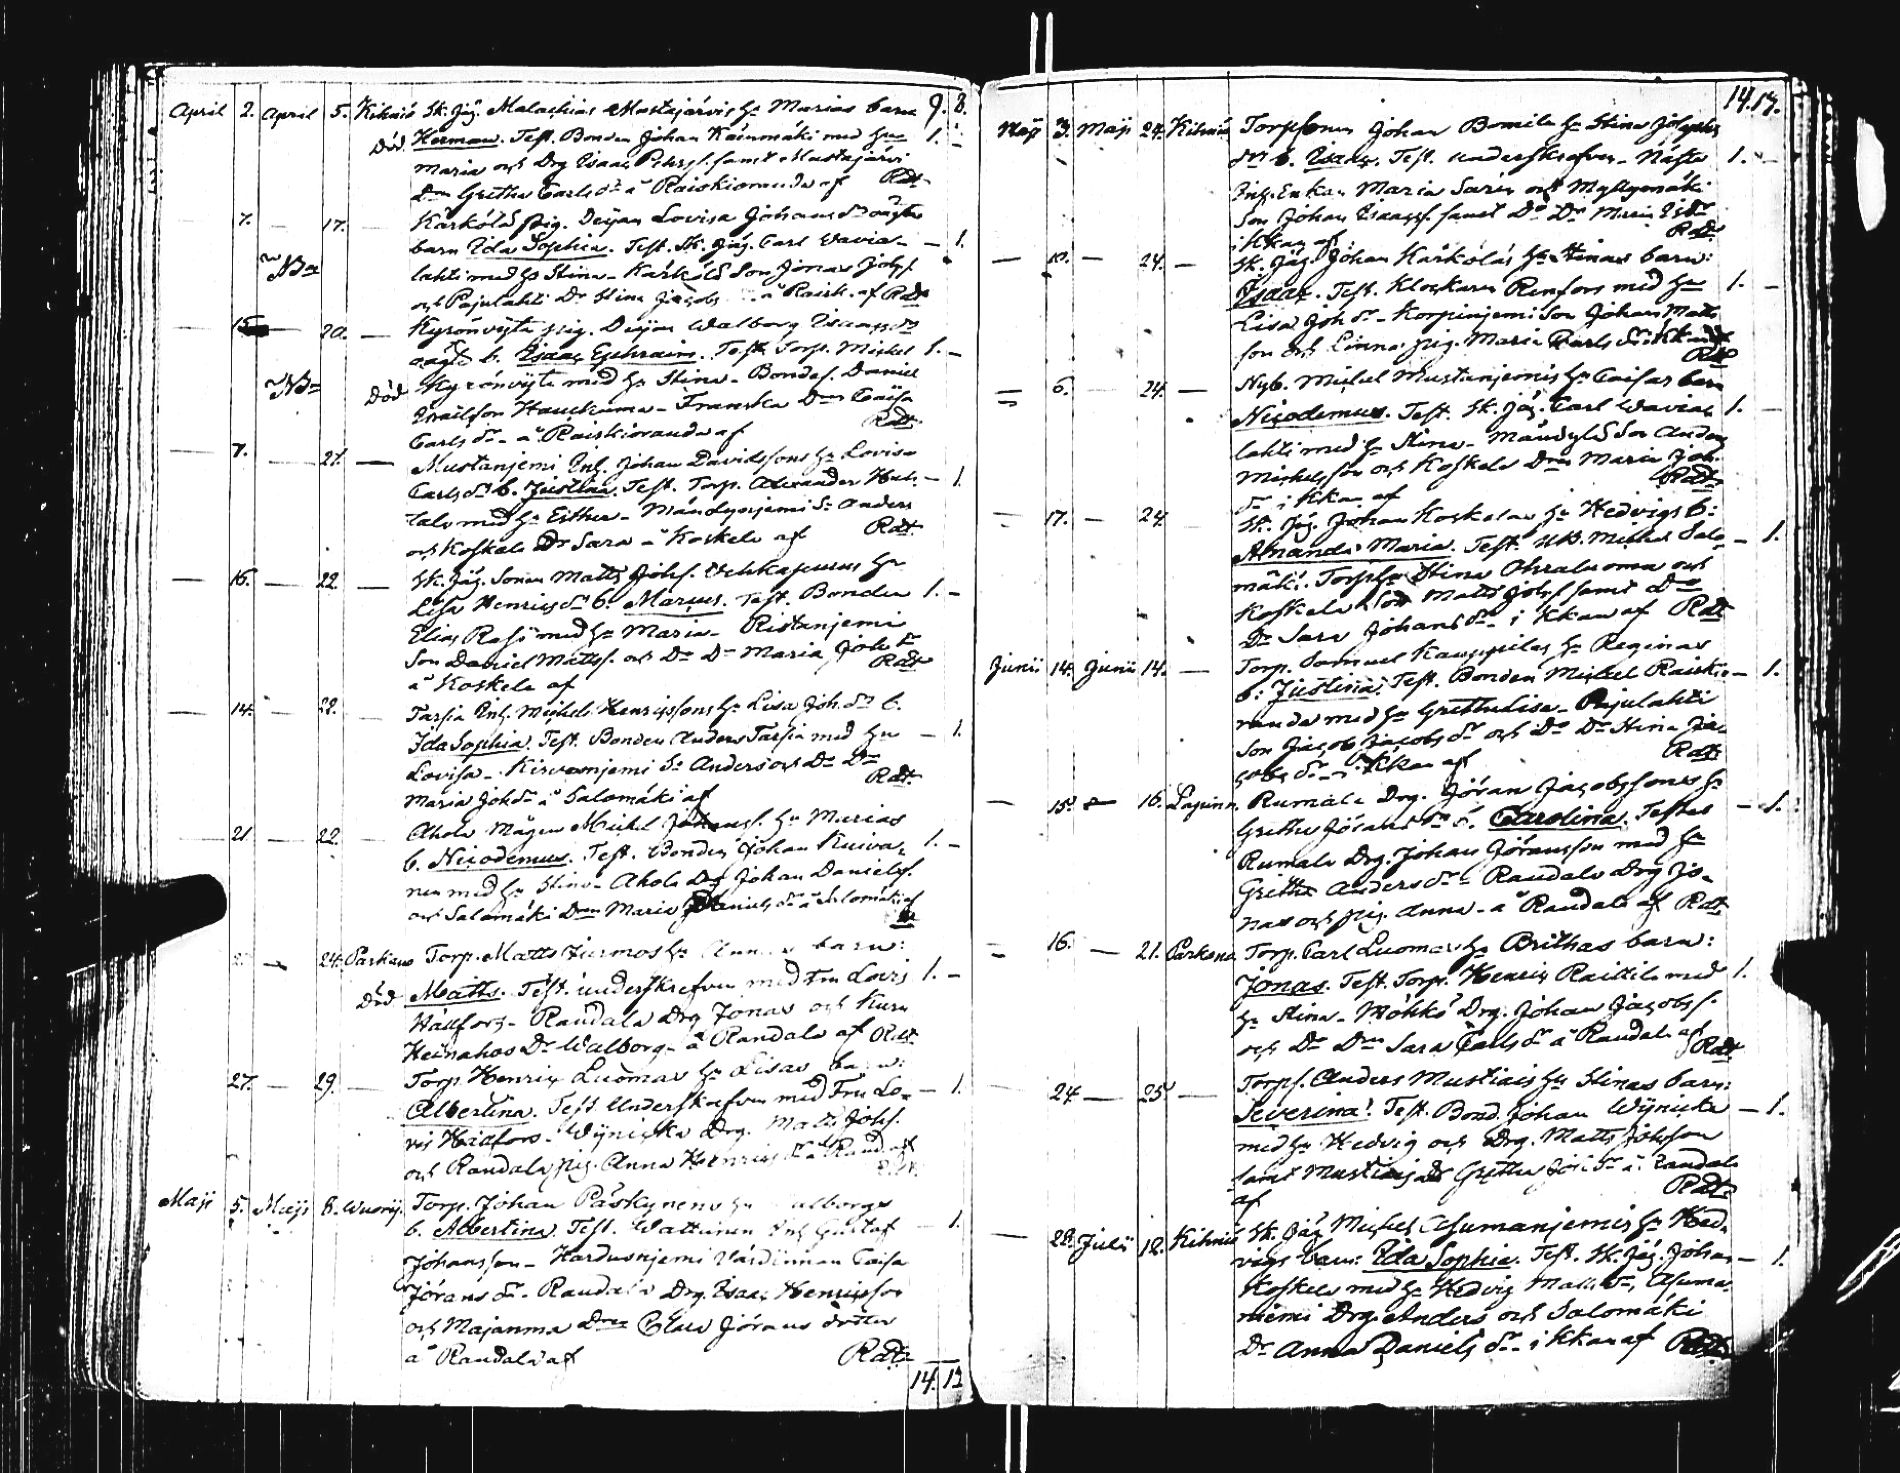 April 2. April 5. Kihniö Sk. Jäg. Malachias Mustajärvis Hu Marias barn 9. 8.
Död Herman. Test. Bonden Johan Kainmäki med Hu 1. -
Maria och Drg Isaac samt Mustajärvi
Dn Gretha Carls dr å Raiskioranda af Rdt
7. 17. Kärkölä pig. Dejan Lovisa Johans dr oägta
barn Ida Sophia. Test. Sk. Jäg. Carl Wavia- - 1.
NB lahti med Hu Stina - Kärkölä Son Jonas Johss.
och Pajulahti Dr Stina Jacobs å Raisk. af Rdt
15. 20. Kyrönviita pig. Dejan Walborg Isaacs dr
oägt b. Isaac Ephraim. Test. Torp. Michel 1. -
NB Död Kyrönviita med Hu Stina - Bondes. Daniel
Hauckama - Franska Dn Caisa
Carls dr - å Raiskioranda af Rdt
7. 21. Mustanjemi Inh. Johan Davidssons Hu Lovisa
Carls dr b. Justina. Test. Torp. Alexander Huh- - 1.
tala med Hu Esther - Mändynjemi Sn Anders
och Koskela Dr Sara - å Koskela af Rdt
16. 22. Sk. Jäg. Sonen Matts Johss. Vehkapuros Hu
Lisa Henrics dr b. Marcus. Test. Bonden 1. -
Elias Rasi med Hu Maria - Ristanjemi
Son Daniel Mattss. och Dn Dn Maria Joh. dr
å Koskela af Rdt
14. 22. Tarsia Inh. Michel Henricssons Hu Lisa Joh. dr b.
Ida Sophia. Test. Bonden Anders Tarsia med Hu - 1.
Lovisa - Kirvesnjemi Sn Anders och Dn Dn
Maria Joh dr å Salomäki af Rdt
21. 22. Ahola Mågen Michel Johanss. Hu Marias
b. Nicodemus. Test. Bonden Johan Kuiva- 1. -
nen med Hu Stina - Ahola Drg Johan Danielss.
och Salomäki Dn Maria Daniels dr å Salomäki af
24. Parkano Torp. Matts Jurmos Hu barn:
Död Matts. Test. underskrefven med Fru Lovis 1. -
Hällfors - Raudala Drg Jonas och Kurn
Heinahos Dr Walborg - å Raudala af Rdt
27. 29. Torp Henric Luomas Hu Lisas barn:
Albertina. Test. Underskrefven med Fru Lo- - 1.
vis Hällfors - Wijnicka Drg. Matts Johss.
och Raudala pig. Anna Henrics dr å Raud. af
Maji 5. Maji 8. Torp. Johan Päskynens Hu alborgs
b. Albertina. Test. Wattuinen Inh Gustaf - 1.
Johansson - Hardusnjemi Värdinnan Caisa
Jörans dr - Raudala Drg. Isaac Henricsson
och Majanma Dn Clara Jörans dotter
å Raudala af Rdt
14. 12
14. 17.
Maji 3. Maji 24. Kihniö Torpsonen Johan Bomila Hu Stina Josephs
dr b. Isaac. Test. underskrefven - Näfse 1. -
Inh. Enkan Maria Sarin och Myllymäki
Son Johan Isaacss. samt Dn Dn Maria Is dr
i Kkan af Rdt
10. 24. Sk. Jäg. Johan Kärköläs Hu Stinas barn:
Isaac. Test. Klockaren Renfors med Hu 1. -
Lisa Joh dr - Korpinjemi Son Johan Matts
son och Linna pig. Maria Carls dr i Kkan af
Rdt
6. 24. Nyb. Michel Mustanjemis Hu Caisas barn
Nicodemus. Test. Sk. Jäg. Carl Wavia- 1. -
lahti med Hu Stina - Mändylä Son Anders
Michelsson och Koskela Dn Maria Joh.
dr i Kkan af Rdt
17. 24. Sk. Jäg. Johan Koskelas Hu Hedvigs b:
Amanda Maria. Test. Michel Salo- - 1.
mäki. Torp Hu Stina Ohraluoma och
Koskela Son Matts Johss samt Dn
Dn Sara Johans dr i Kkan af Rdt
Junii 14. Junii 14. Torp. Samuel Kauppilas Hu Reginas
b: Justina. Test. Bonden Michel Raiskio- - 1.
randa med Hu Grethalisa - Pajulahti
Son Jacob Jacobs dr och Dn Dn Stina Ja-
cobs dr - i Kkan af Rdt
15. 16. Rumala Drg. Jöran Jacobssons Hu
Gretha Johans dr b. Carolina. Testes - 1.
Rumala Drg. Johan Jöransson med Hu
Gretha Anders dr - Raudala Drg Jo-
nas och pig. Anna - å Raudala af Rdt
16. 21. Parkano Torp. Carl Luomas Hu Brithas barn:
Jonas. Test. Torp. Henric Raittila med 1.
Hu Stina - Mökkö Drg. Johan Jacobss.
och Dn Dn Sara Carls dr å Raudala af
Rdt
24. 25. Torps. Anders Mustiais Hu Stinas barn:
Severina. Test. Bond. Johan Wijnicka - 1.
med Hu Hedvig och Drg. Matts Johsson
samt Mustiais Dr Gretha Joh dr å Raudala
af Rdt
28. Julii 12. Kihniö Sk. Jäg Michel Asumanjemis Hu Hed-
vigs barn: Ida Sophia. Test. Sk. Jäg. Johan - 1.
Koskela med Hu Hedvig Matts dr, Asuma-
niemi Drg. Anders och Salomäki
Dr Anna Daniels dr - i Kkan af Rdt